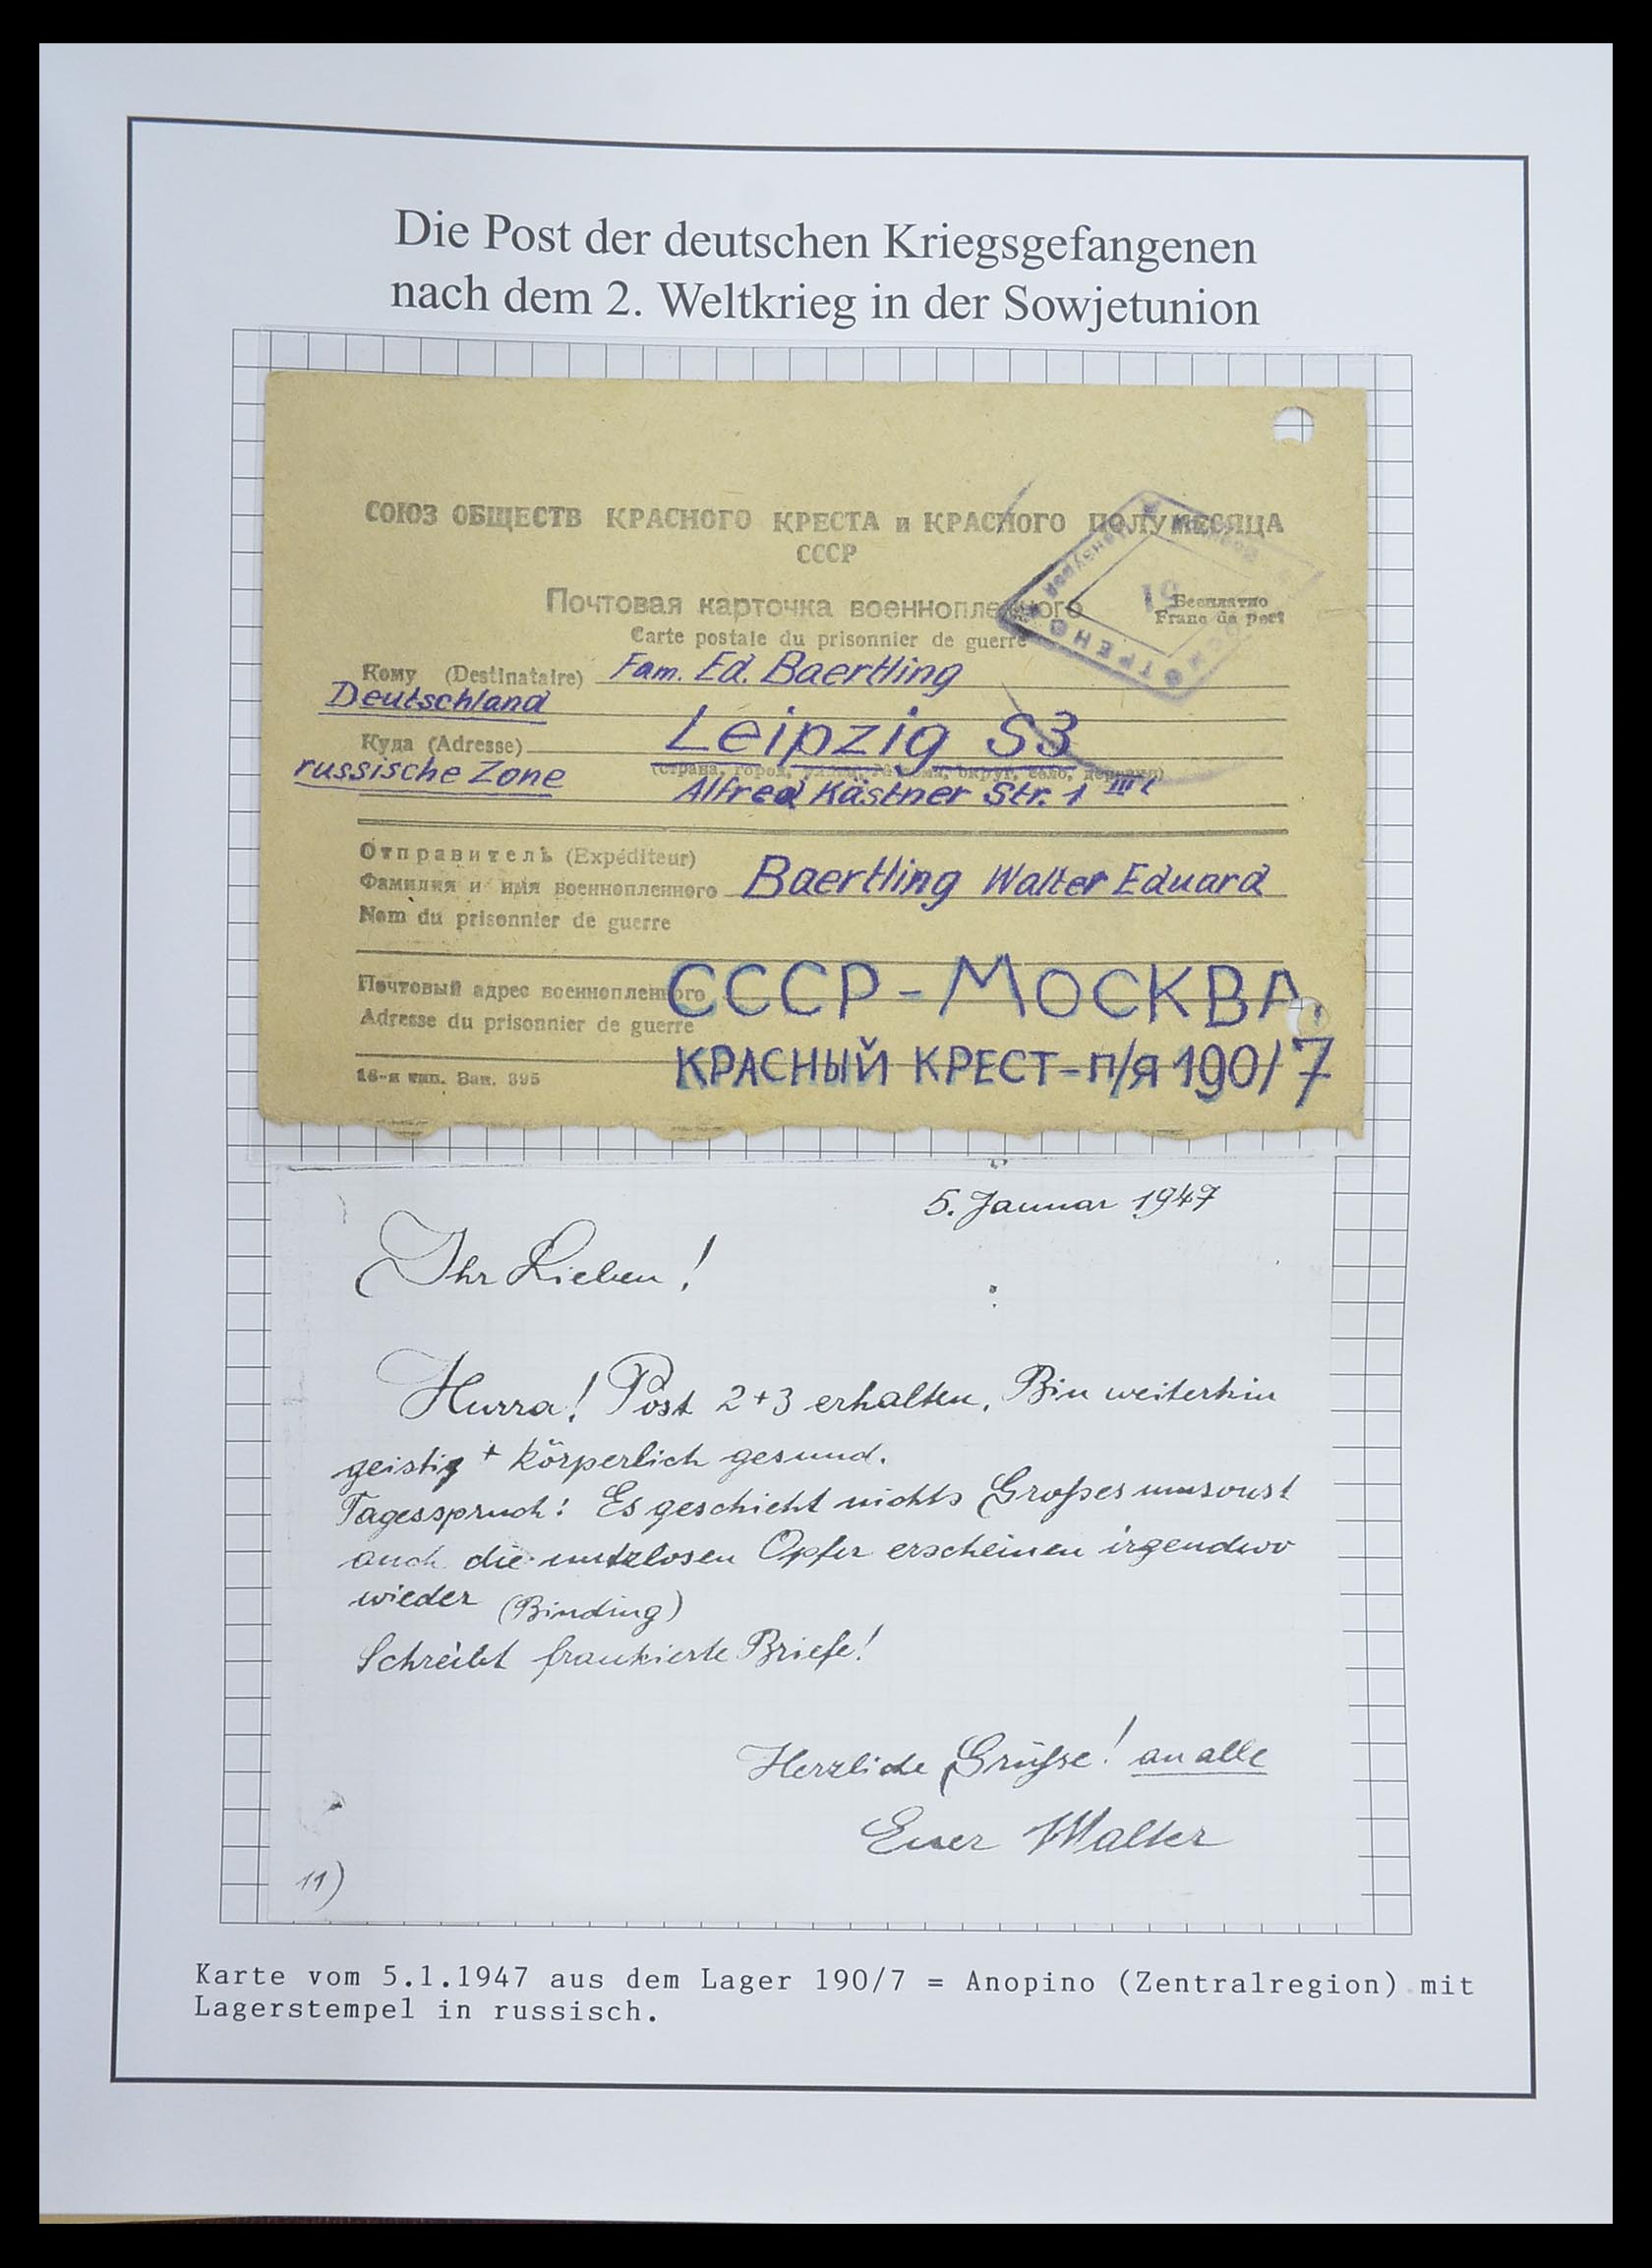 Die Post der deutschen Kriegsgefangenen
nach dem 2. Weltkrieg in der Sowjetunion
СОЮЗ ОБЩЕСТВ КРАСНОГО КРЕСТА и КРАСНОГО ПОЛУМЕСЯЦА
СССР
Почтовая карточка военнопленного
Carte postale du prisonnier de guerre
Бесплатно
Franc de port
ОТРЕНО
19
Кому (Destinataire) Fam. Ed. Baertling
Deutschland
Куда (Adresse) Leipzig S3
(страна, город, округ, село, деревня)
russische Zone Alfred Kästner Str. 1 III l
Отправитель (Expéditeur)
Фамилия и имя военнопленного Baertling Walter Eduard
Nom du prisonnier de guerre
Почтовый адрес военнопленного СССР-МОСКВА.
Adresse du prisonnier de guerre
КРАСНЫЙ КРЕСТ-п/я 190/7
16-я тип. Зак. 395
5. Januar 1947
Ihr Lieben!
Hurra! Post 2+3 erhalten. Bin weiterhin
geistig + körperlich gesund.
Tagesspruch: Es geschieht nichts Großes umsonst
auch die nutzlosen Opfer erscheinen irgendwo
wieder (Binding)
Schreibt frankierte Briefe!
Herzliche Grüße! an alle
Euer Walter
11)
Karte vom 5.1.1947 aus dem Lager 190/7 = Anopino (Zentralregion) mit
Lagerstempel in russisch.